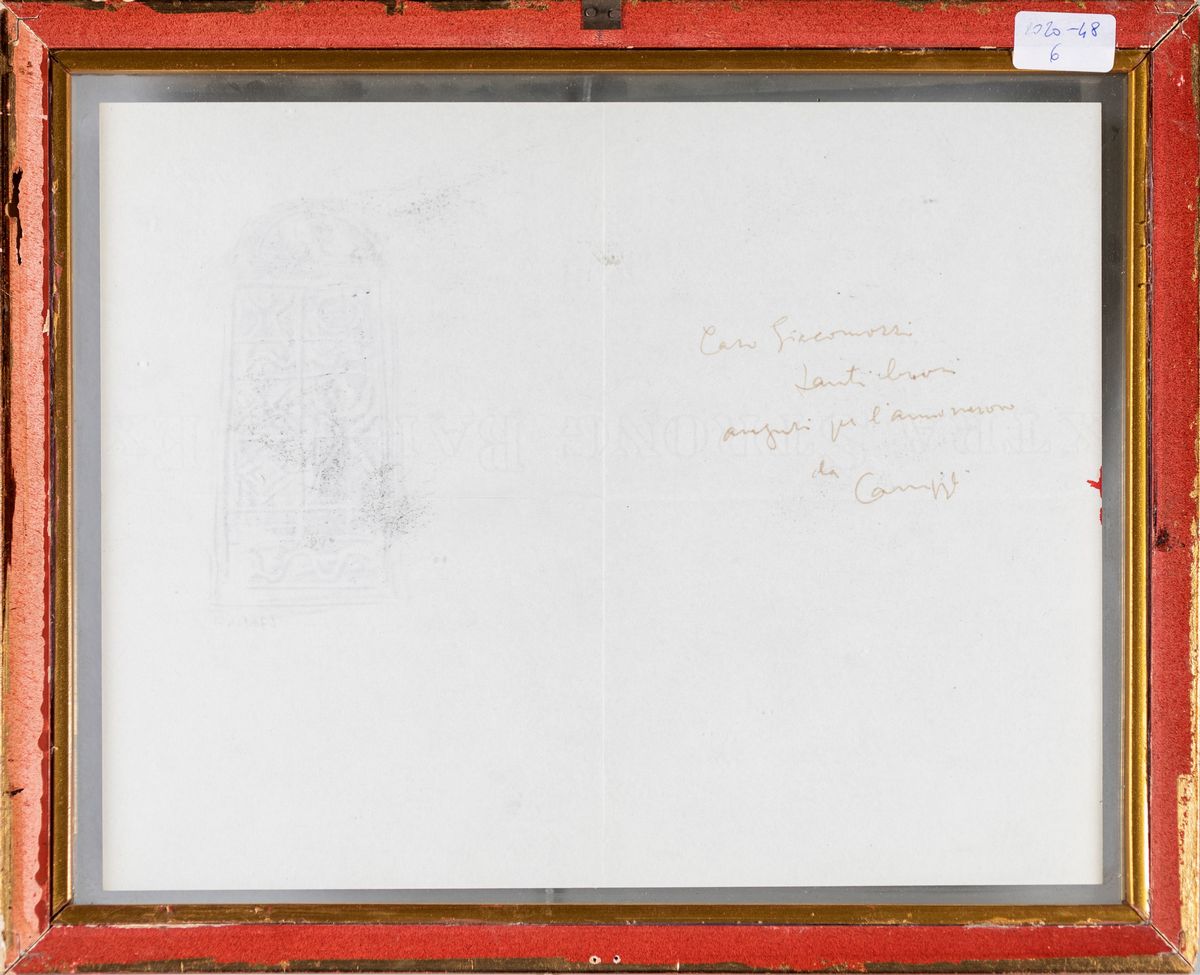 2020-48
6
Caro Giacomozzi
tanti buoni
auguri per l'anno nuovo
da
Campigli